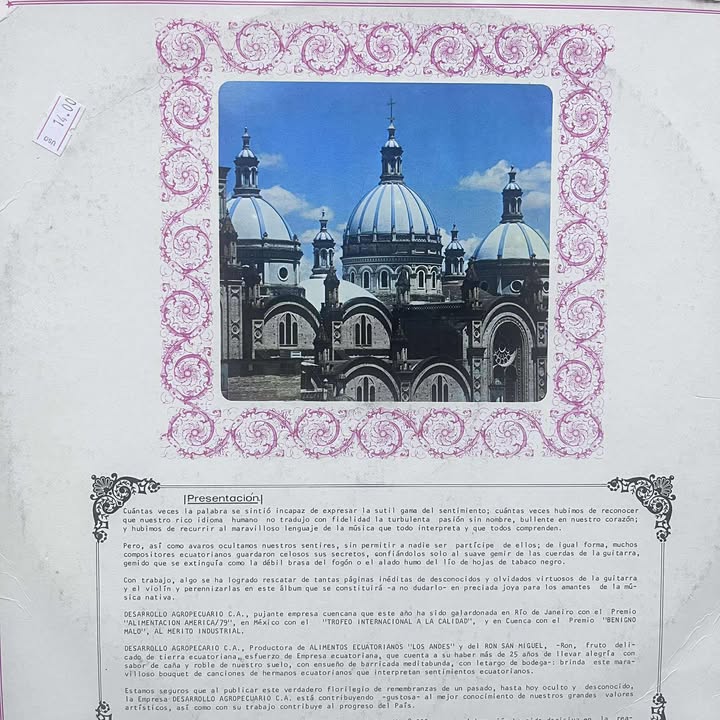 USD 14.00
Presentación
Cuántas veces la palabra se sintió incapaz de expresar la sutil gama del sentimiento; cuántas veces hubimos de reconocer
que nuestro rico idioma humano no tradujo con fidelidad la turbulenta pasión sin nombre, bullente en nuestro corazón;
y hubimos de recurrir al maravilloso lenguaje de la música que todo interpreta y que todos comprenden.
Pero, así como avaros ocultamos nuestros sentires, sin permitir a nadie ser partícipe de ellos; de igual forma, muchos
compositores ecuatorianos guardaron celosos sus secretos, confiándolos solo al suave gemir de las cuerdas de la guitarra,
gemido que se extinguía como la débil brasa del fogón o el alado humo del lío de hojas de tabaco negro.
Con trabajo, algo se ha logrado rescatar de tantas páginas inéditas de desconocidos y olvidados virtuosos de la guitarra
y el violín y perennizarlas en este álbum que se constituirá -a no dudarlo- en preciada joya para los amantes de la mú-
sica nativa.
DESARROLLO AGROPECUARIO C.A., pujante empresa cuencana que este año ha sido galardonada en Río de Janeiro con el Premio
"ALIMENTACION AMERICA/79", en México con el "TROFEO INTERNACIONAL A LA CALIDAD", y en Cuenca con el Premio "BENIGNO
MALO", AL MERITO INDUSTRIAL.
DESARROLLO AGROPECARIO C.A., Productora de ALIMENTOS ECUATORIANOS "LOS ANDES" y del RON SAN MIGUEL, -Ron, fruto deli-
cado de tierra ecuatoriana, esfuerzo de Empresa ecuatoriana, que cuenta a su haber más de 25 años de llevar alegría con
sabor de caña y roble de nuestro suelo, con ensueño de barricada meditabunda, con letargo de bodega-: brinda este mara-
villoso bouquet de canciones de hermanos ecuatorianos que interpretan sentimientos ecuatorianos.
Estamos seguros que al publicar este verdadero florilegio de remembranzas de un pasado, hasta hoy oculto y desconocido,
la Empresa DESARROLLO AGROPECUARIO C.A. está contribuyendo -gustosa- al mejor conocimiento de nuestros grandes valores
artísticos, así como con su trabajo contribuye al progreso del País.